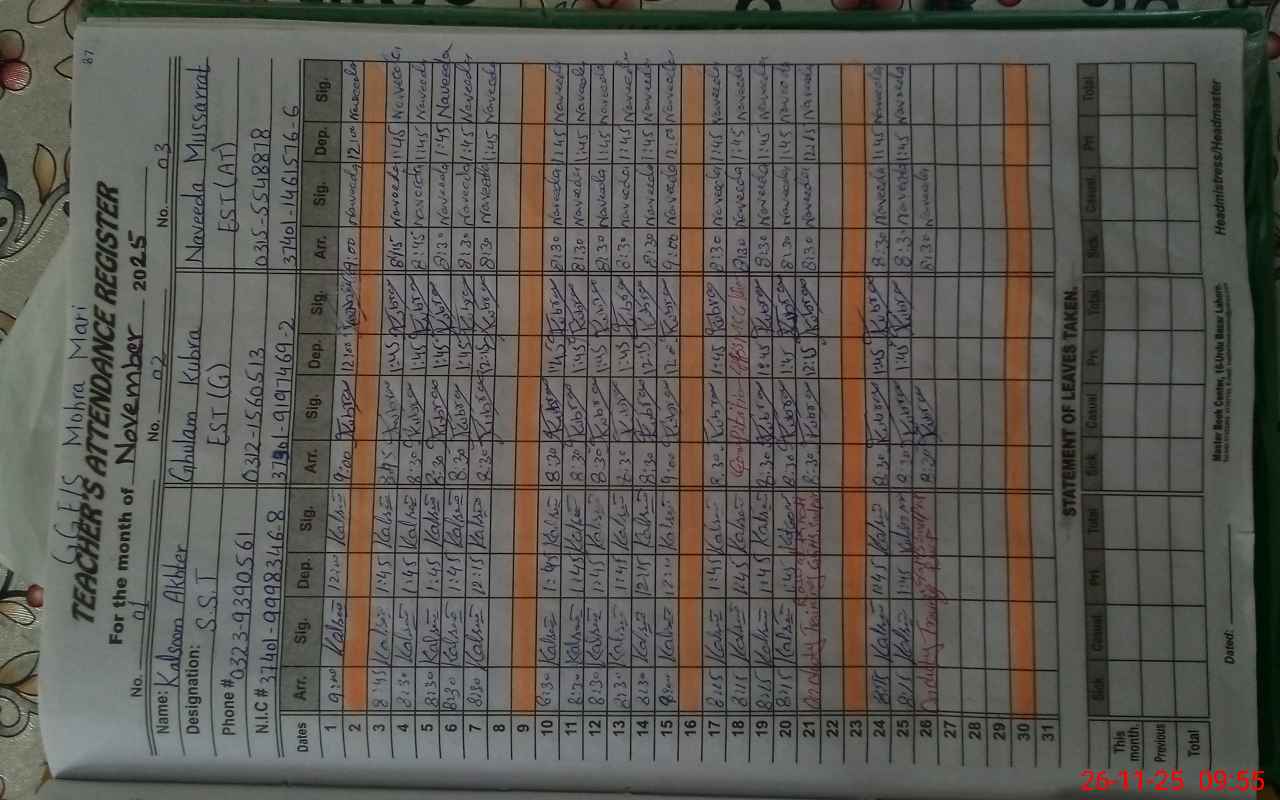 87
GGES Mohra Mari
TEACHER'S ATTENDANCE REGISTER
For the month of November 2025
No. 01 No. 02 No. 03
Name: Kalsoom Akhter Ghulam Kubra Naveeda Mussarrat
Designation: S.S.T EST(G) EST(AT)
Phone # 0323-9390561 0312-1560513 0315-5548878
N.I.C # 37401-9998346-8 37401-9197469-2 37401-1461576-6
Dates Arr. Sig. Dep. Sig. Arr. Sig. Dep. Sig. Arr. Sig. Dep. Sig.
1 9:00 Kalsoom 12:00 Kalsoom 9:00 Kubra 12:00 Kubra 9:00 Naveeda 12:00 Naveeda
2
3 8:45 Kalsoom 1:45 Kalsoom 8:45 Kubra 1:45 Kubra 8:45 Naveeda 1:45 Naveeda
4 8:30 Kalsoom 1:45 Kalsoom 8:30 Kubra 1:45 Kubra 8:45 Naveeda 1:45 Naveeda
5 8:30 Kalsoom 1:45 Kalsoom 8:30 Kubra 1:45 Kubra 8:30 Naveeda 1:45 Naveeda
6 8:30 Kalsoom 1:45 Kalsoom 8:30 Kubra 1:45 Kubra 8:30 Naveeda 1:45 Naveeda
7 8:30 Kalsoom 12:15 Kalsoom 8:30 Kubra 12:15 Kubra 8:30 Naveeda 1:45 Naveeda
8
9
10 8:30 Kalsoom 1:45 Kalsoom 8:30 Kubra 1:45 Kubra 8:30 Naveeda 1:45 Naveeda
11 8:30 Kalsoom 1:45 Kalsoom 8:30 Kubra 1:45 Kubra 8:30 Naveeda 1:45 Naveeda
12 8:30 Kalsoom 1:45 Kalsoom 8:30 Kubra 1:45 Kubra 8:30 Naveeda 1:45 Naveeda
13 8:30 Kalsoom 1:45 Kalsoom 8:30 Kubra 1:45 Kubra 8:30 Naveeda 1:45 Naveeda
14 8:30 Kalsoom 12:15 Kalsoom 8:30 Kubra 12:15 Kubra 8:30 Naveeda 1:45 Naveeda
15 9:00 Kalsoom 12:00 Kalsoom 9:00 Kubra 12:00 Kubra 9:00 Naveeda 12:00 Naveeda
16
17 8:15 Kalsoom 1:45 Kalsoom 8:30 Kubra 1:45 Kubra 8:30 Naveeda 1:45 Naveeda
18 8:15 Kalsoom 1:45 Kalsoom Competition 8:30 Naveeda 1:45 Naveeda
19 8:15 Kalsoom 1:45 Kalsoom 8:30 Kubra 1:45 Kubra 8:30 Naveeda 1:45 Naveeda
20 8:15 Kalsoom 1:45 Kalsoom 8:30 Kubra 1:45 Kubra 8:30 Naveeda 1:45 Naveeda
21 On duty Training 8:30 Kubra 12:15 Kubra 8:30 Naveeda 12:15 Naveeda
22
23
24 8:15 Kalsoom 1:45 Kalsoom 8:30 Kubra 1:45 Kubra 8:30 Naveeda 1:45 Naveeda
25 8:15 Kalsoom 1:45 Kalsoom 8:30 Kubra 1:45 Kubra 8:30 Naveeda 1:45 Naveeda
26 On duty Training 8:30 Kubra 8:30 Naveeda
27
28
29
30
31
STATEMENT OF LEAVES TAKEN.
Sick Casual Pri Total Sick Casual Pri Total Sick Casual Pri Total
This month.
Previous
Total
Dated: Master Book Center, 16-Urdu Bazar Lahore. Headmistress/Headmaster
26-11-25 09:55